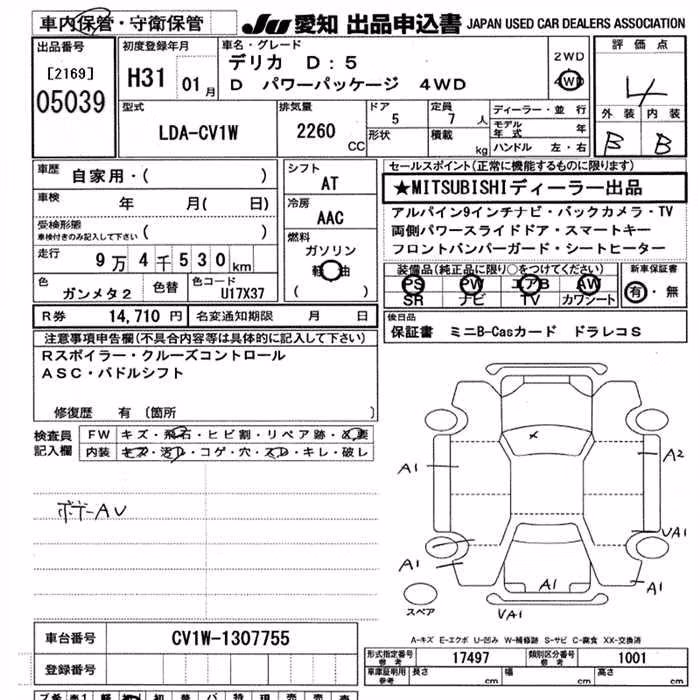 車内保管・守衛保管
Ju 愛知 出品申込書 JAPAN USED CAR DEALERS ASSOCIATION
出品番号
[2169]
05039
初度登録年月
H31 01月
車名・グレード
デリカ D：5
D パワーパッケージ 4WD
2WD
4WD
評価点
4
外装 内装
B B
型式
LDA-CV1W
排気量
2260
CC
ドア
5
形状
定員
7 人
積載
kg
ディーラー・並行
モデル年式 年
ハンドル 左・右
車歴
自家用・( )
車検
年 月( 日)
受検形態
車検付きのみ記入して下さい ( )
走行
9万4千530km
色
ガンメタ2
色替
色コード
U17X37
シフト
AT
冷房
AAC
燃料
ガソリン
軽油
( )
セールスポイント(正常に機能するものに限ります)
★MITSUBISHIディーラー出品
アルパイン9インチナビ・バックカメラ・TV
両側パワースライドドア・スマートキー
フロントバンパーガード・シートヒーター
装備品(純正品に限り○をつけてください)
PS PW エアB AW
SR ナビ TV カワシート
新車保証書
有・無
R券 14,710 円
名変通知期限 月 日
後日品
保証書 ミニB-Casカード ドラレコS
注意事項申告欄(不具合内容等は具体的に記入して下さい)
Rスポイラー・クルーズコントロール
ASC・パドルシフト
修復歴 有 (箇所 )
検査員記入欄
FW キズ・飛石・ヒビ割・リペア跡・必要
内装 キズ・汚レ・コゲ・穴・スレ・キレ・破レ
ボデーAU
A1
A2
UA1
A1
A1
A1
UA1
スペア
A-キズ E-エクボ U-凹み W-補修跡 S-サビ C-腐食 XX-交換済
車台番号
CV1W-1307755
登録番号
形式指定番号
参考
17497
類別区分番号
参考
1001
車庫証明用
参考
長さ cm
幅 cm
高さ cm